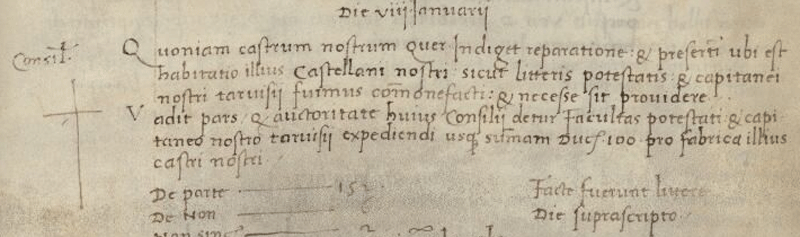 Die viij Januarii
Consil.
Quoniam castrum nostrum quer Indiget reparatione: & preserti ubi est
habitatio illius Castellani nostri sicut litteris potestatis & capitanei
nostri tarvisij fuimus comonefacti: & necesse sit providere
Vadit pars q auctoritate huius Consilij detur Facultas potestati & capi
taneo nostro tarvisij expediendi usq sumam Duc. 100 pro fabrica illius
castri nostri
De parte 15
De Non
Facte fuerunt littere
Die suprascripto